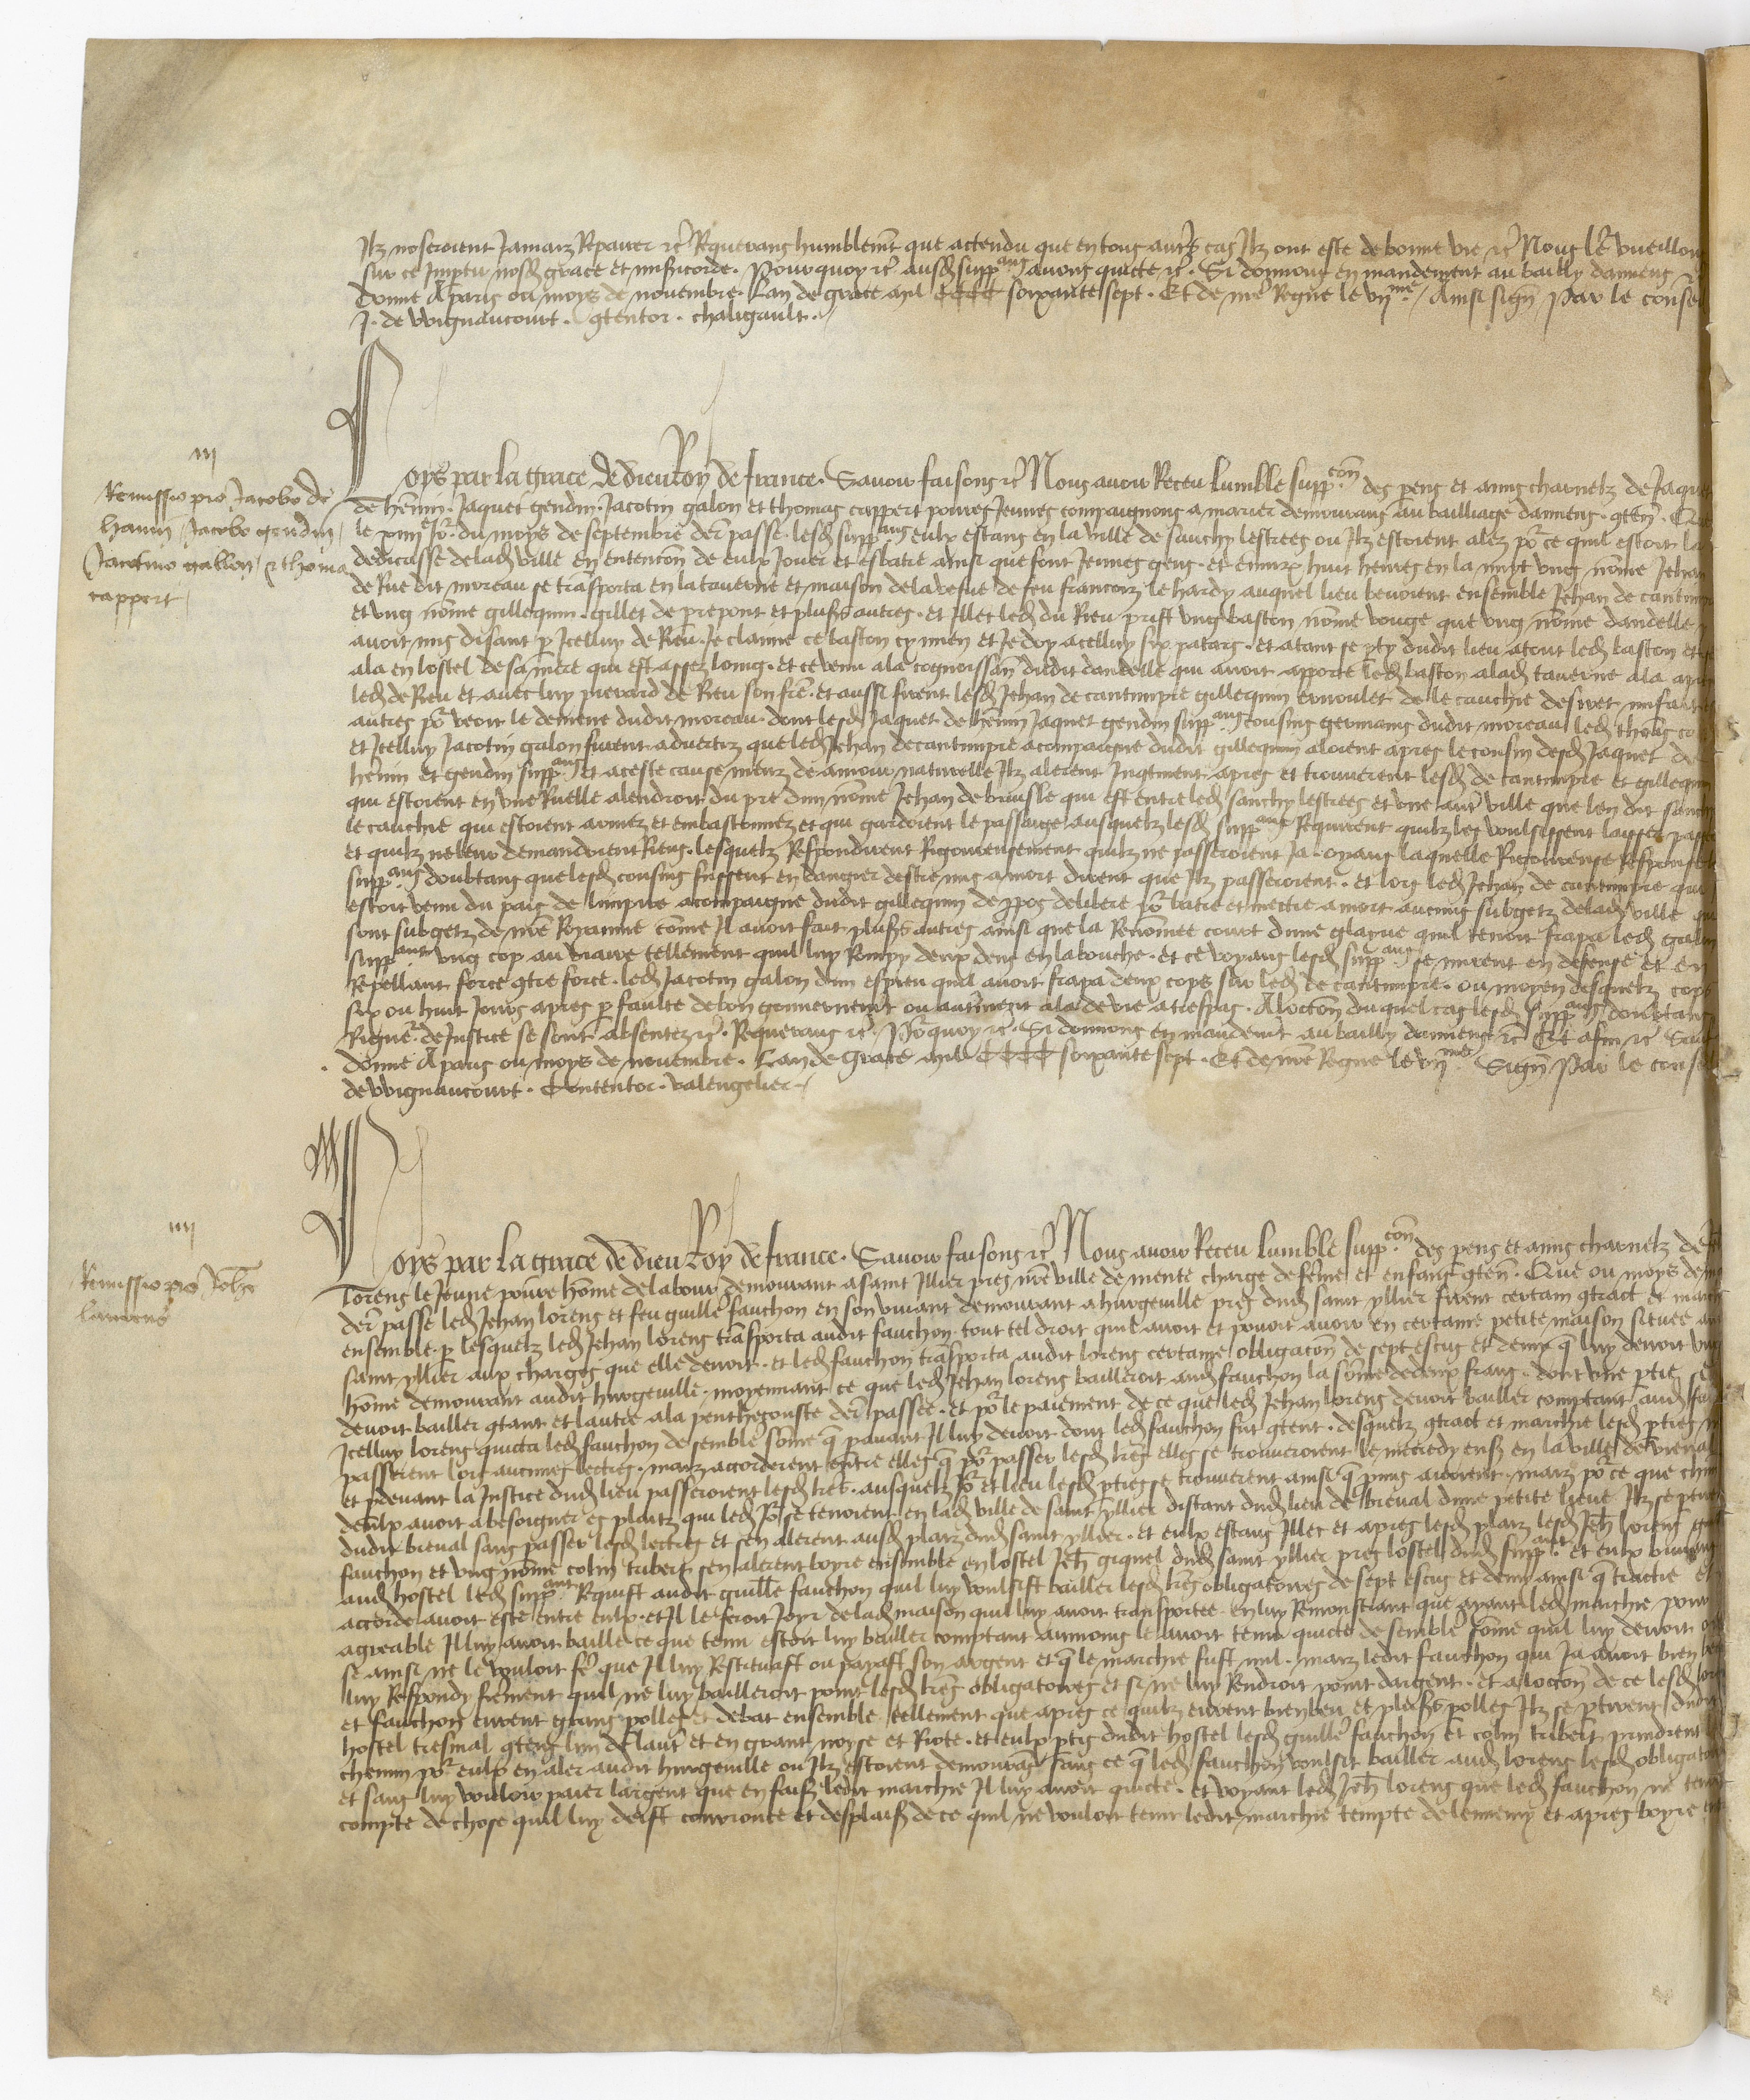 Ilz noseroient Jamaiz Repairer &c Requerans humblemt que actendu que en tous autrs cas Ilz ont este de bonne vie &c Nous lr vueillons
sur ce Impartir nosd grace et misericorde. Pourquoy &c ausd suppans avons quicte &c. Si donnons en mandement au bailly damiens
Donne A paris ou moys de novembre. Lan de grace mil CCCC soixante sept. Et de nre Regne le vijme / Ainsi signe Par le conseil
J. de Wignaucourt. gtentor. chaligault./
iij
Remissio pro Jacobo de
hanin / Jacobo gendin /
Jacotino gallon / & thoma
cappert /
Loys par la grace de dieu Roy de france. Savoir faisons &c Nous avoir Receu lumble suppcon des pens et amis charnelz de Jaquet
de henin. Jaquet gendin. Jacotin galon et thomas cappert povres Jeunes compaignons a marier demourans au bailliage damiens. gten. Que
le xiiije Jor du moys de septembre der passe. lesd suppans eulx estans en la ville de sauchy lestrees ou Ilz estoient alez por ce quil estoit la
dedicasse de lad ville en entencon de eulx Jouer et esbatre ainsi que font Jeunes gens. et environ huit heures en la nuyt ung nome Jehan
de Rue dit moreau se trasporta en la taverne et maison de la vefve de feu francoiz le hardy auquel lieu bevoient ensemble Jehan de cantimpre
et ung nome gillequin. gillet de prepont et plusrs autres. et Illec led du Rieu prist ung baston nome vouge que ung nome dandelle y
avoit mis disant p Icelluy de Rieu. Je claime ce baston cy mien et Je doy a celluy six patars. et atant se pty dudit lieu atout led baston et sen
ala en lostel de sa mere qui est assez loing. et ce venu a la cognoissan dudit dandelle qui avoit apporte led baston a lad taverne ala apres
led de Rieu et avec luy pierard de Rieu son fre. et aussi furent lesd Jehan de cantimpre gillequin ernoulet de le cauchie desiret mifaut et
autres por veoir le demene dudit moreau. dont lesd Jaquet de henin Jaquet gendin suppans cousins germains dudit moreau led thomas co
et Icelluy Jacotin galon furent advertiz que led Jehan de cantimpre acompaigne dudit gillequin aloient apres le cousin desd Jaquet de
henin et gendin suppans et a ceste cause meuz de amour naturelle Ilz alerent Ingtment apres et trouverent lesd de cantimpre et gillequin
qui estoient en une Ruelle alendroit du pre dun nome Jehan de brusle qui est entre led sauchy lestrees et une autr ville que len dit sauchy
le cauchie qui estoient armez et embastonnez et qui gardoient le passaige ausquelz lesd suppans Requirent quilz les voulsissent laisser passer
et quilz ne leur demandoient Riens. lesquelz Respondirent Rigoureusement quilz ne passeroient Ja. oyans laquelle Rigoureuse Response lesd
suppans doubtans que lesd cousins fussent en dangier destre mis a mort dirent que Ilz passeroient. et lors led Jehan de cantimpre qui
estoit venu du pais de limpire acompaigne dudit gillequin de ppos delibere por batre et mectre a mort aucuns subgetz de lad ville qui
sont subgetz de nre Royaume come Il avoit fait plusrs autres ainsi que la Renomee court dune glayve quil tenoit frapa led galon
suppant ung cop au visaige tellement quil luy Rompy deux dens en la bouche. et ce voyans lesd suppans se mirent en defense et en
Repellant force gtre force. led Jacotin galon dun espieu quil avoit frapa deux cops sur led de cantimpre. ou moyen desquelz cops
six ou huit Jours apres p faulte de bon gouvernemt ou autrement ala de vie a trespas. A loccon duquel cas lesd suppans doubtans
Rigueur de Justice se sont absentez &c. Requerans &c. Porquoy &c. Si donnons en mandemt au bailly damiens &c Et afin &c Sauf
Donne A paris ou moys de novembre. Lan de grace mil CCCC soixante sept. Et de nre Regne le vijme. Signe Par le conseil
de Wignaucourt. Contentor. Valengelier./
iiij
Remissio pro Johe
laurens
Loys par la grace de dieu Roy de france. Savoir faisons &c Nous avoir Receu lumble suppcon des pens et amis charnelz de Jeh
Lorens le Jeune povre home de labour demourant a saint Illier pres nre ville de mente charge de feme et enfans gten. Que ou moys de may
der passe led Jehan lorens et feu guille fauchon en son vivant demourant a hurgeville pres dud saint yllier firent certain gtract et marche
ensemble. p lesquelz led Jehan lorens transporta audit fauchon. tout tel droit quil avoit et povoit avoir en certaine petite maison situee aud
saint yllier aux charges que elle devoit. et led fauchon trasporta audit lorens certaine obligacon de sept escus et demy q luy devoit ung
home demourant audit hurgeville. moyennant ce que led Jehan lorens bailleroit aud fauchon la some de deux frans. dont une ptie
devoit bailler gtant et lautre a la penthecouste der passee. et por le paiement de ce que led Jehan lorens devoit bailler comptant aud fauchon
Icelluy lorens quicta led fauchon de semble some q pavant Il luy devoit dont led fauchon fut gtent. desquelz gtract et marchie lesd pties ne
passerent lors aucunes lectres. maiz accorderent entre elles q por passer lesd lres elles se trouveroient le mercredy ens en la ville de breval
et pdevant la Justice dud lieu passeroient lesd lres. ausquelz Jor et lieu lesd pties se trouverent ainsi q pmis avoient. maiz por ce que chun
deulx avoit a besoigner es plaitz qui led Jor se tenoient en lad ville de saint yllier distant dud lieu de breval dune petite lieue Ilz se ptirent
dudit breval sans passer lesd lectres et sen alerent ausd plaiz dud saint yllier. et eulx estans Illec et apres lesd plaiz lesd Jeh lorens guille
fauchon et ung nome colin tribert sen alerent boyre ensemble en lostel Jeh giquel dud saint yllier pres lostel dud suppant. et eulx buvans
aud hostel led suppant Requist audit guille fauchon quil luy voulsist bailler lesd lres obligatoires de sept escus et demy ainsi q traictie et
accorde avoit este entre eulx. et Il le feroit Joyr de lad maison quil luy avoit transportee en luy Remonstrant que ayant led marchie pour
agreable Il luy avoit baille ce que tenu estoit luy bailler comptant aumoins le avoit tenu quicte de semble some quil luy devoit ou
se ainsi ne le vouloit fe que Il luy Restituast ou paiast son argent et q le marchie fust nul. maiz ledit fauchon qui Ja avoit bien beu
luy Respondy fierement quil ne luy bailleroit point lesd lres obligatoires et si ne luy Rendroit point dargent. et a loccon de ce lesd lorens
et fauchon eurent grans polles et debat ensemble tellement que apres ce quilz eurent bien beu et plusrs polles Ilz se ptirent dudit
hostel tresmal gtens lun de lautr et en grant noyse et Riote. et eulx ptis dudit hostel lesd guille fauchon et colin tribert prindrent le
chemin por eulx en aler audit hurgeville ou Ilz estoient demourans sans ce q led fauchon voulsist bailler aud lorens lesd obligatoires
et sans luy vouloir paier largent que en fais ledit marchie Il luy avoit quicte. et voyant led Jeh lorens que led fauchon ne tenoit
compte de chose quil luy deist courrouce et desplais de ce quil ne vouloit tenir ledit marchie tempte de lennemy et apres boyre